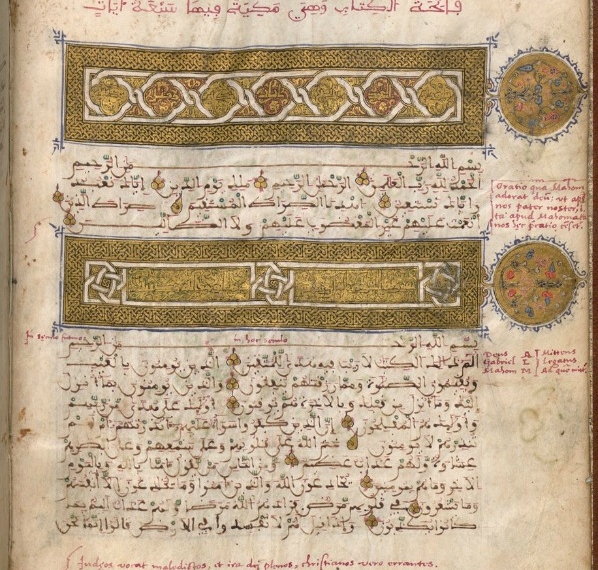 فاتحة الكتاب وهي مكية فيها سبعة آيات
بسم الله الرحمن الرحيم
الحمد لله رب العالمين الرحمن الرحيم ملك يوم الدين إياك نعبد
وإياك نستعين اهدنا الصراط المستقيم صراط الذين
أنعمت عليهم غير المغضوب عليهم ولا الضالين
Oratio qua Mahom
adorat deū; ut apd
nos pater noster,
ita apud Mahometa
nos hec oratio
بسم الله الرحمن الرحيم
in hoc
الم ذلك الكتب لا ريب فيه هدى للمتقين الذين يومنون بالغيب
ويقيمون الصلوة ومما رزقنهم ينفقون والذين يومنون بما أنزل
إليك وما أنزل من قبلك وبالاخرة هم يوقنون أوليك على هدى من ربهم
وأوليك هم المفلحون إن الذين كفروا سواء عليهم ءانذرتهم أم لم
تنذرهم لا يومنون ختم الله على قلوبهم وعلى سمعهم وعلى أبصرهم
غشوة ولهم عذاب عظيم ومن الناس من يقول ءامنا بالله وباليوم
الاخر وما هم بمومنين يخدعون الله والذين ءامنوا وما يخدعون إلا أنفسهم
وما يشعرون في قلوبهم مرض فزادهم الله مرضا ولهم عذاب أليم بما
كانوا يكذبون وإذا قيل لهم لا تفسدوا في الارض قالوا إنما نحن
Deus A Mittens
Gabriel L Legatus
Mahom M Ad quē
Iudeos vocat maledictos, et ira dei plenos, christianos vero errantes.